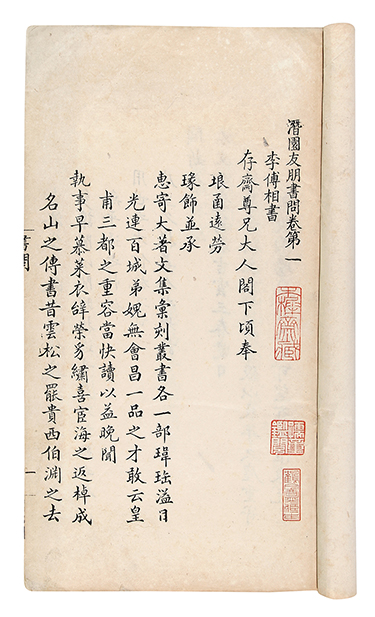 潛園友朋書問卷第一
李傅相書
存齋尊兄大人閣下頃奉
琅函遠勞
瑑飾並承
惠寄大著文集彙刻叢書各一部瑋珤溢目
光連百城弟媿無會昌一品之才敢云皇
甫三都之重容當快讀以益晚聞
執事早慕萊衣辭榮豸繡喜宦海之返棹成
名山之傳書昔雲松之罷貴西伯淵之去